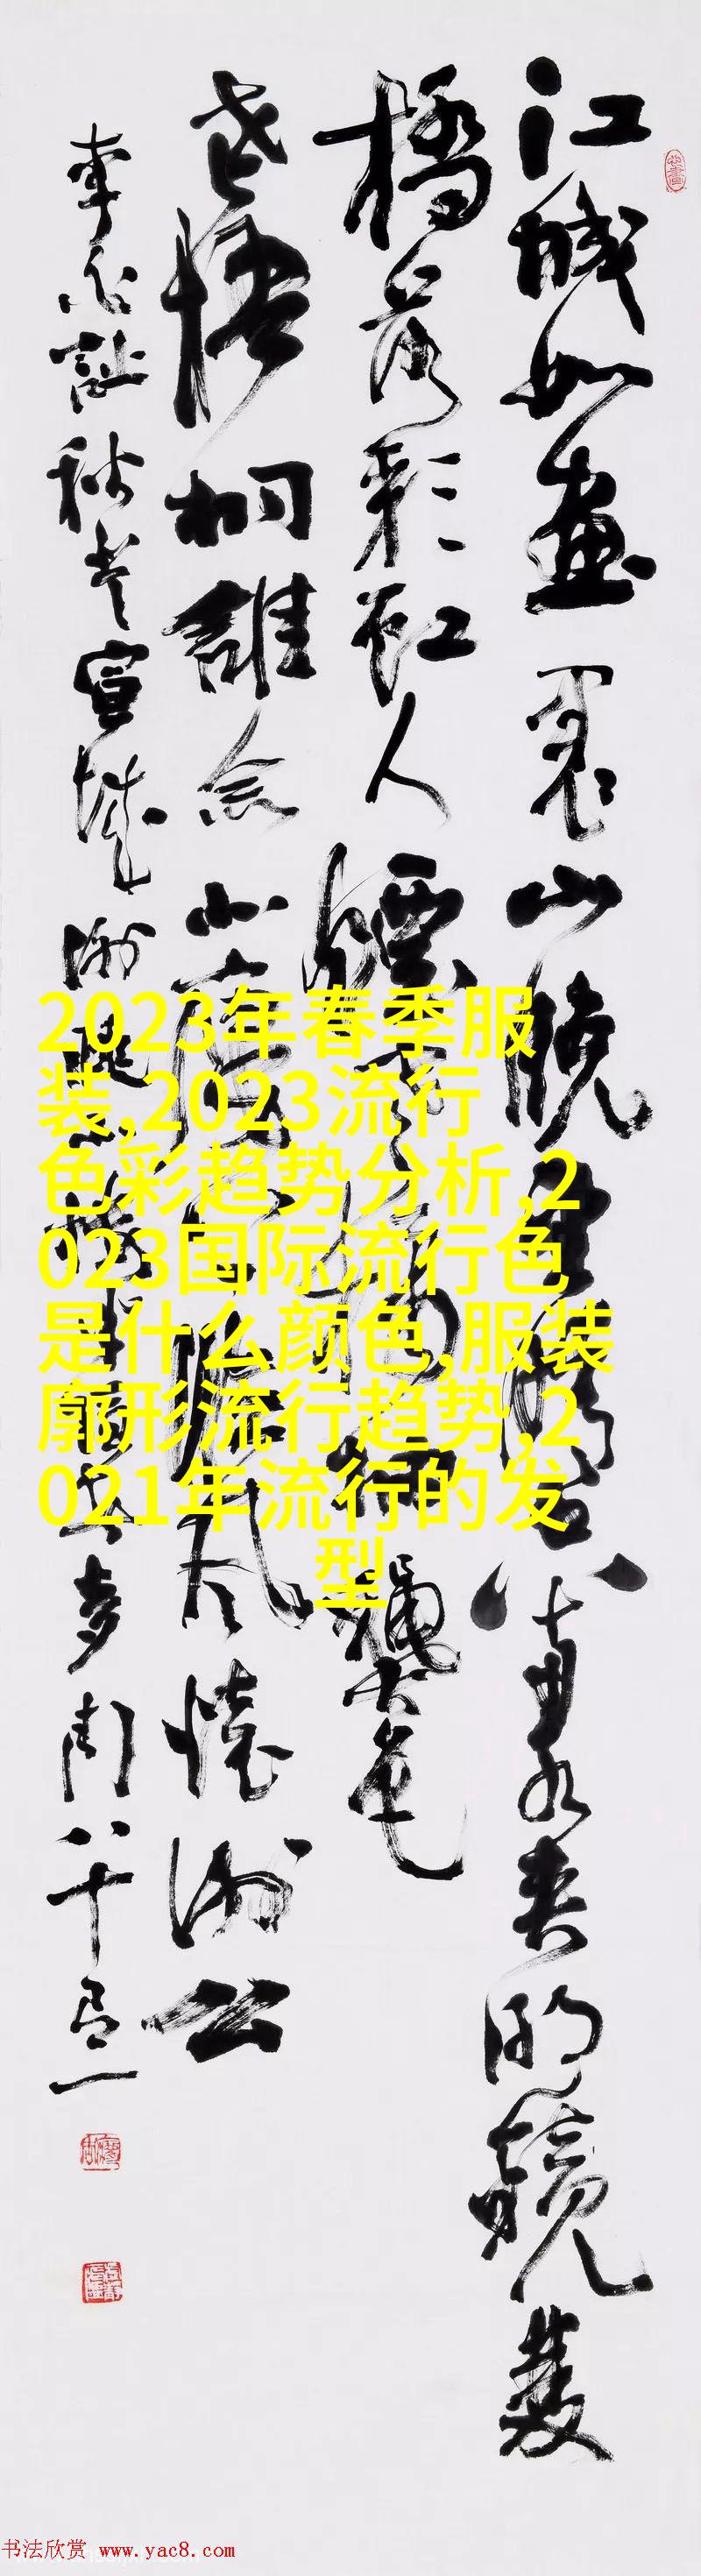 江城如畫裏山晚望晴空兩水夾明鏡雙
橋落彩虹人煙寒橘柚龝色
老梧桐誰念北樓上臨風懷謝公
李白詩秋登宣城謝朓北樓
2023年春季服
装,2023流行
色彩趋势分析,2
023国际流行色
是什么颜色,服装
廓形流行趋势,2
021年流行的发
型
书法欣赏 www.yac8.com